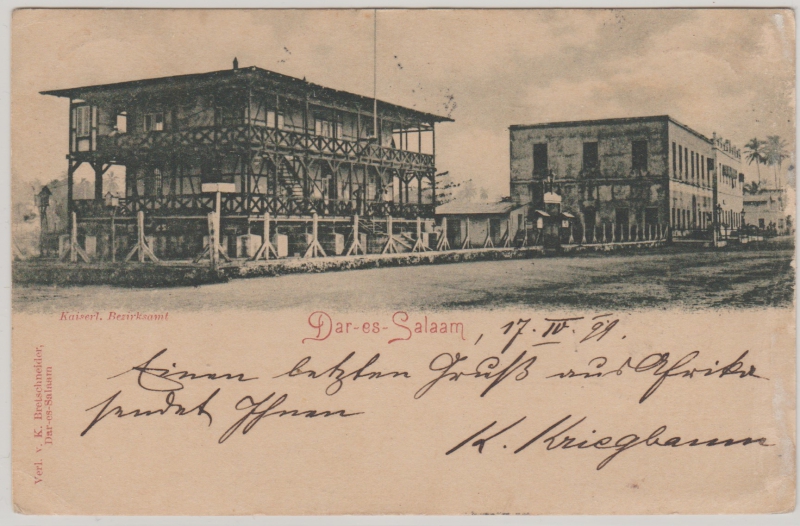 Kaiserl. Bezirksamt
Dar-es-Salaam, 17. IV. 99.
Einen letzten Gruß aus Afrika
sendet Ihnen
K. Kriegbaum
Verl. v. K. Bretschneider,
Dar-es-Salaam